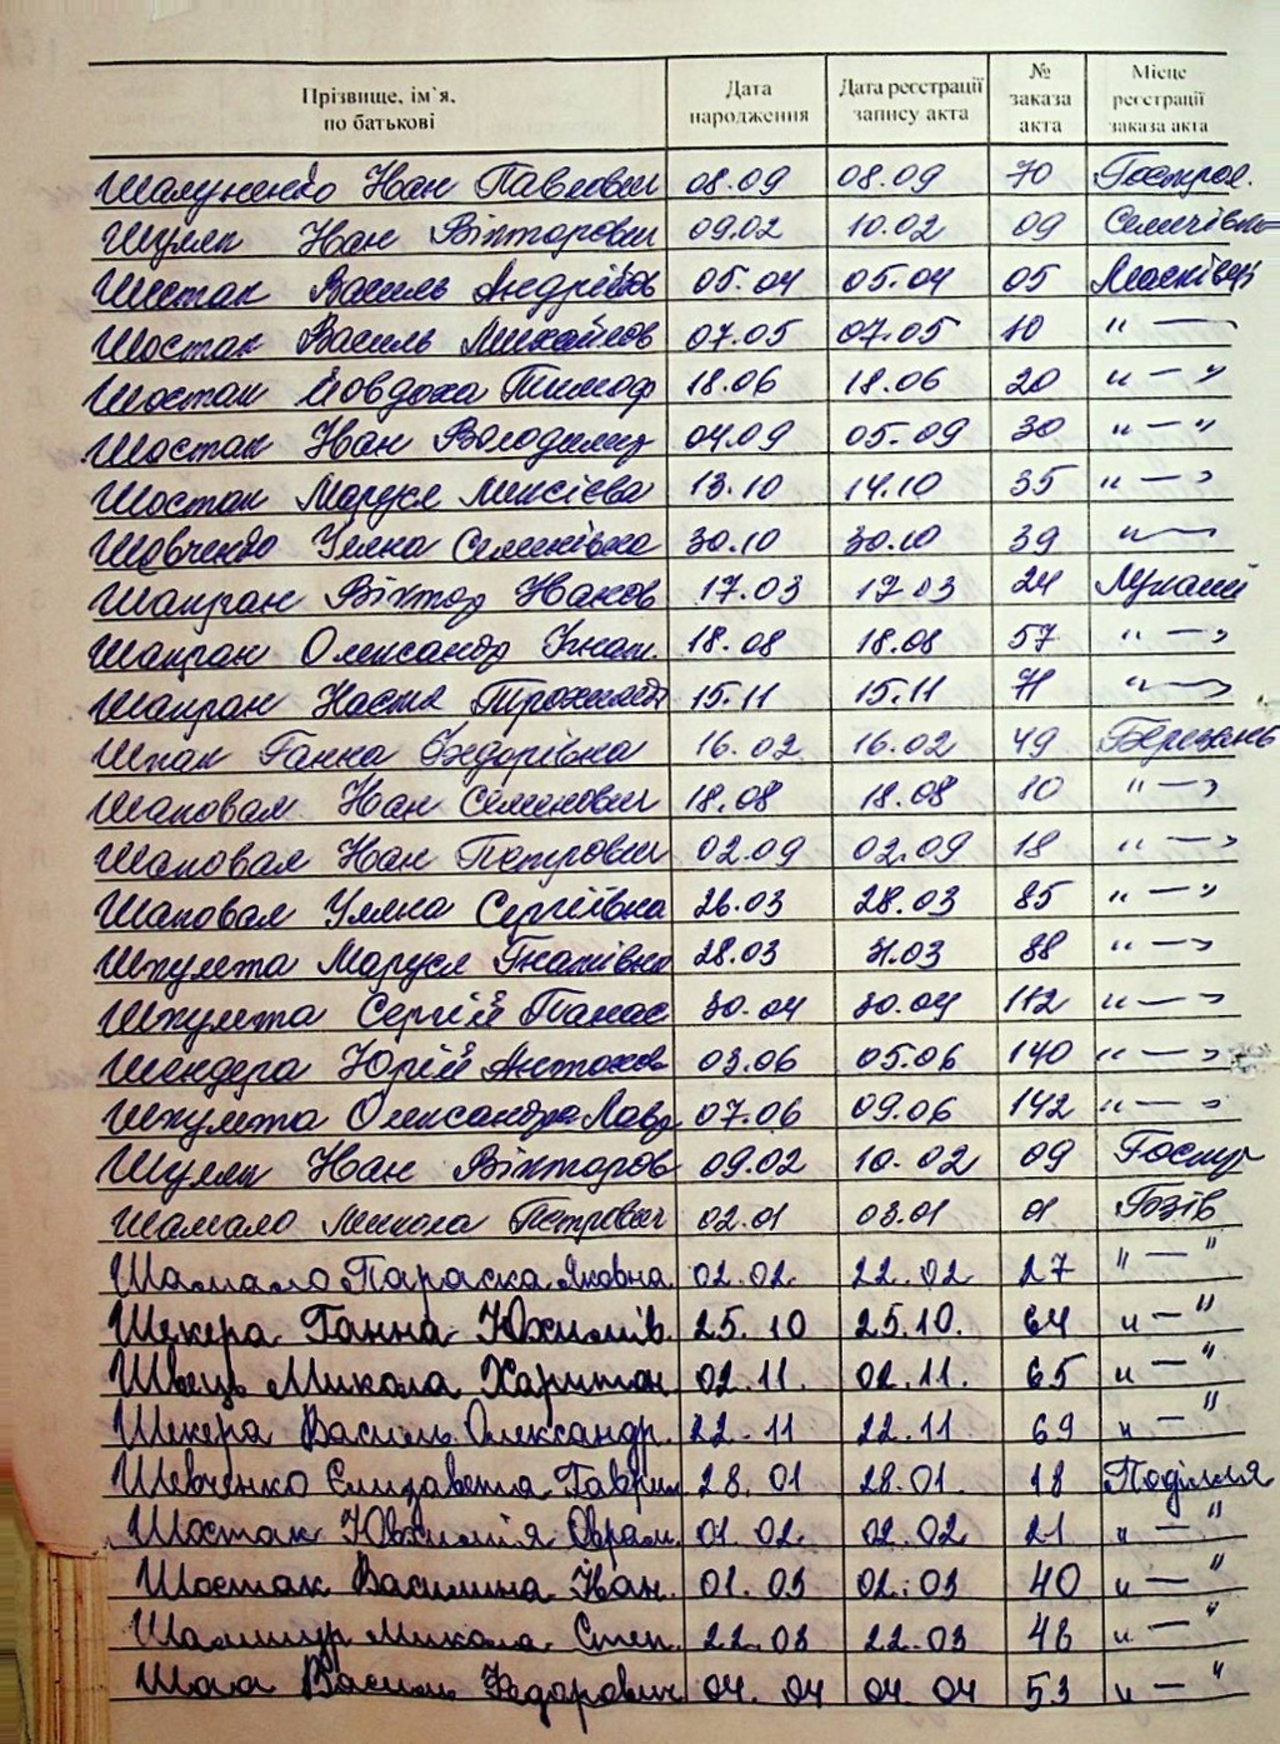 Прізвище, ім`я, по батькові Дата народження Дата реєстрації запису акта № заказа акта Місце реєстрації заказа акта
Іван Павлович 08.09 08.09 70
Шуляк Іван Вікторович 09.02 10.02 09
Шостак Василь Андріїв 05.04 05.04 05
Шостак Василь Михайлов 07.05 07.05 10 " —
Шостак Йовдоха Тимоф 18.06 18.06 20 " — "
Шостак Іван Володимир 04.09 05.09 30 " — "
Шостак Маруся 13.10 14.10 35 " — "
Шевченко Уляна Семенівна 30.10 30.10 39 " —
Шапран Віктор Іванов 17.03 17.03 24 Лукаші
Шапран Олександр Ігнат. 18.08 18.08 57 " — "
Шапран Настя 15.11 15.11 71 " — "
Шпак Ганна Федорівна 16.02 16.02 49 Березань
Шаповал Іван Семенович 18.08 18.08 10 " — "
Шаповал Іван Петрович 02.09 02.09 18 " — "
Шаповал Уляна Сергіївна 26.03 28.03 85 " — "
Шкулета Маруся Гнатівна 28.03 31.03 88 " — "
Шкулета Сергій Панас 30.04 30.04 112 " — "
Шендера Юрій Антонов 03.06 05.06 140 " — "
Шкулета Олександра Лавр 07.06 09.06 142 " — "
Шуляк Іван Вікторов 09.02 10.02 09
Шамало Микола Петрович 02.01 03.01 01
Шамало Параска Яковна 02.02. 22.02 27 " — "
Шекера Ганна Юхимів. 25.10 25.10. 64 " — "
Швець Микола Харитон 02.11. 02.11. 65 " — "
Шекера Василь Олександр. 22.11 22.11 69 " — "
Шевченко Єлизавета Гаврил 28.01 28.01. 18 Поділля
Шостак Оврам. 01.02. 02.02 21 " — "
Шостак Василина Іван. 01.03 02.03 40 " — "
Микола Степ. 22.03 22.03 46 " — "
Василь Федорович 04.04 04.04 53 " — "